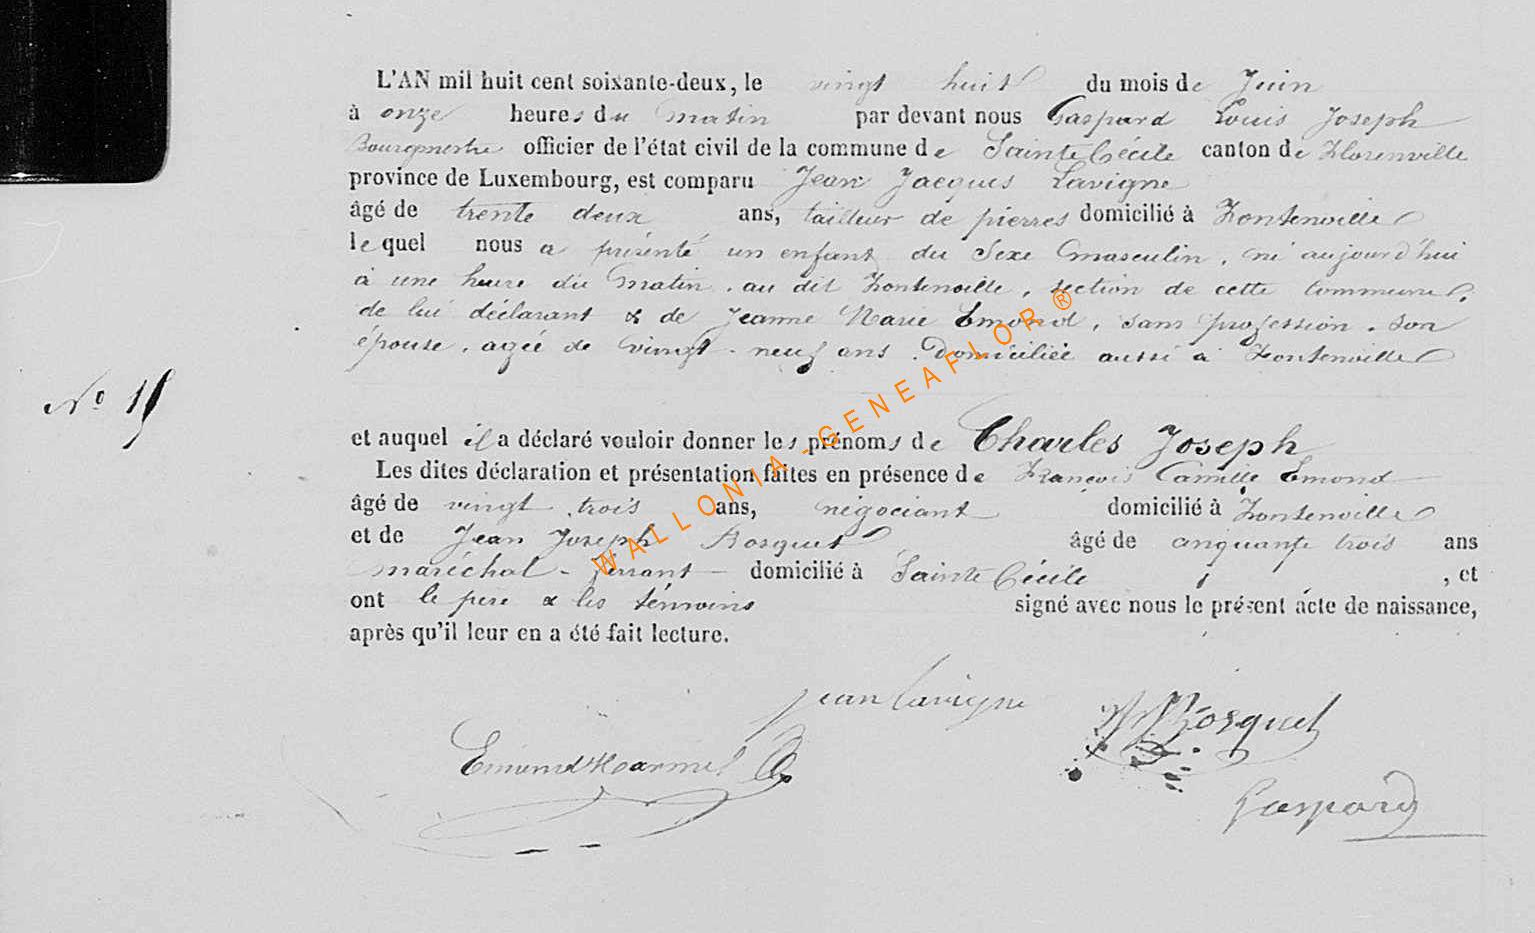 L'AN mil huit cent soixante-deux, le vingt huit du mois de Juin
à onze heures du matin par devant nous Gaspard Louis Joseph
Bourgmestre officier de l'état civil de la commune de Sainte Cécile canton de Florenville
province de Luxembourg, est comparu Jean Jacques Lavigne
âgé de trente deux ans, tailleur de pierres domicilié à Fontenoille
lequel nous a présenté un enfant du sexe masculin, né aujourd'hui
à une heure du matin, au dit Fontenoille, section de cette commune,
de lui déclarant & de Jeanne Marie Emond, sans profession, son
épouse, agée de vingt-neuf ans, Domiciliée aussi à Fontenoille
No 15
et auquel il a déclaré vouloir donner les prénoms de Charles Joseph
Les dites déclaration et présentation faites en présence de François Camille Emond
âgé de vingt trois ans, négociant domicilié à Fontenoille
et de Jean Joseph Bosquet âgé de cinquante trois ans
maréchal-ferrant domicilié à Sainte Cécile, et
ont le père & les témoins signé avec nous le présent acte de naissance,
après qu'il leur en a été fait lecture.
jean lavigne
Bosquet
Emond
Gaspard
WALLONIA-GENEAFLOR®